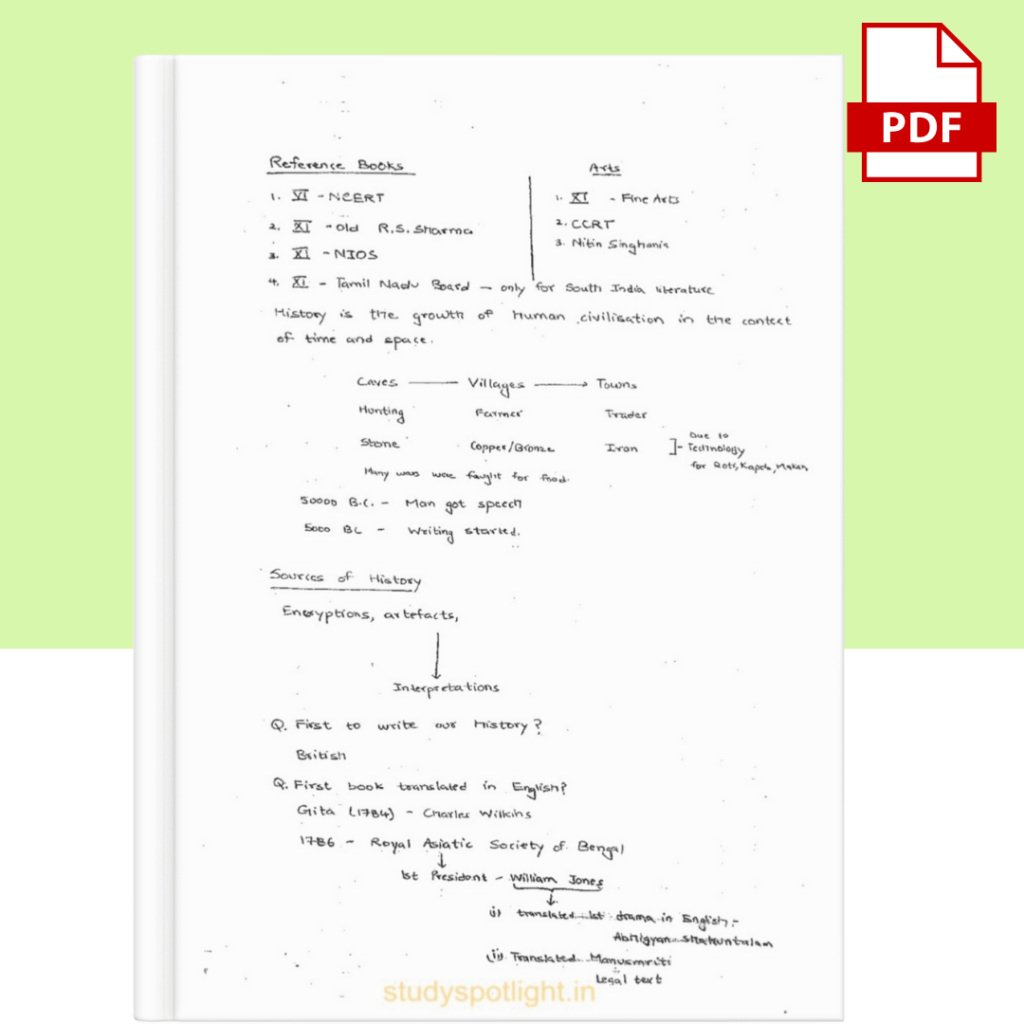 PDF
Reference Books
1. VI - NCERT
2. XI - old R.S. Sharma
3. XI - NIOS
4. XI - Tamil Nadu Board - only for South India literature
Arts
1. XI - Fine Arts
2. CCRT
3. Nitin Singhania
History is the growth of human civilisation in the context
of time and space.
Caves Villages Towns
Hunting Farmer Trader
Stone Copper/Bronze Iron
Due to
Technology
for Roti, Kapda, Makan
Many wars were faught for food.
50000 B.C. - Man got speech
5000 BC - Writing started.
Sources of History
Encryptions, artefacts,
Interpretations
Q. First to write our history?
British
Q. First book translated in English?
Gita (1784) - Charles Wilkins
1786 - Royal Asiatic Society of Bengal
1st President - William Jones
(i) translated 1st drama in English -
Abhigyan Shakuntalam
(ii) Translated Manusmriti
Legal text
studyspotlight.in